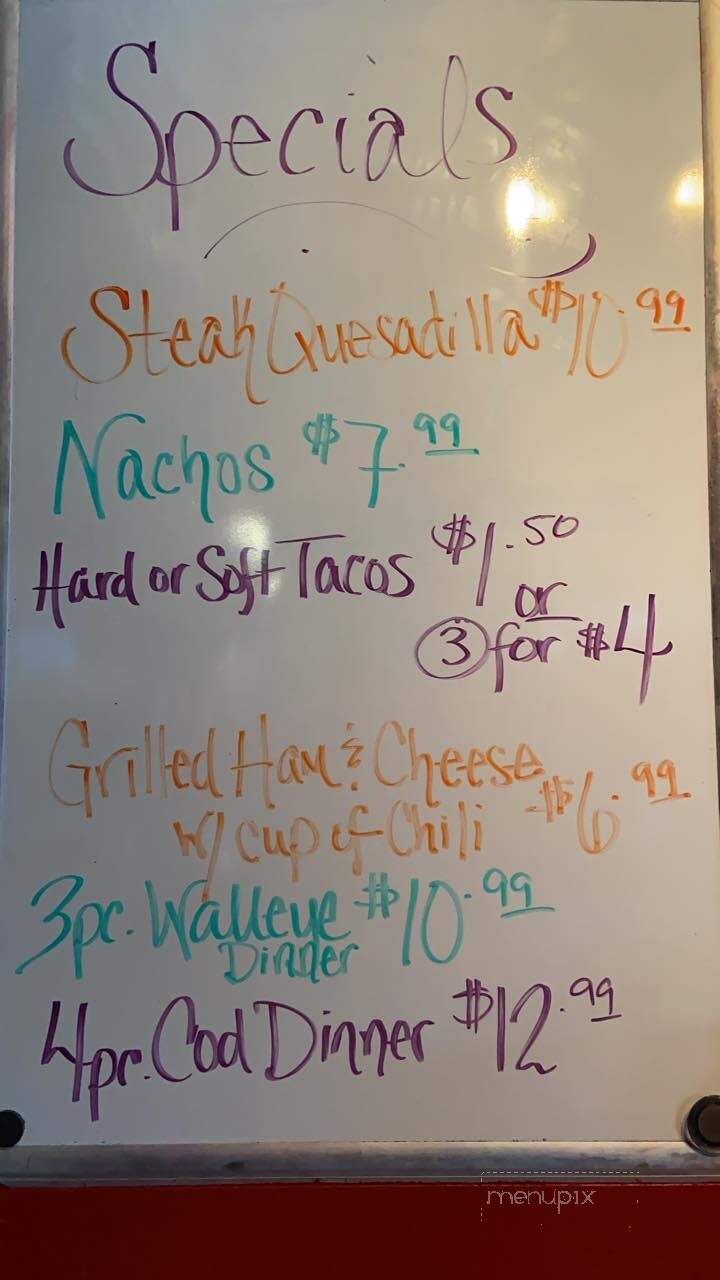 Specials
Steak Quesadilla $10.99
Nachos $7.99
Hard or Soft Tacos $1.50
or
3 for $4
Grilled Ham & Cheese $6.99
w/ cup of Chili
3pc. Walleye $10.99
Dinner
4pc. Cod Dinner $12.99
menupix